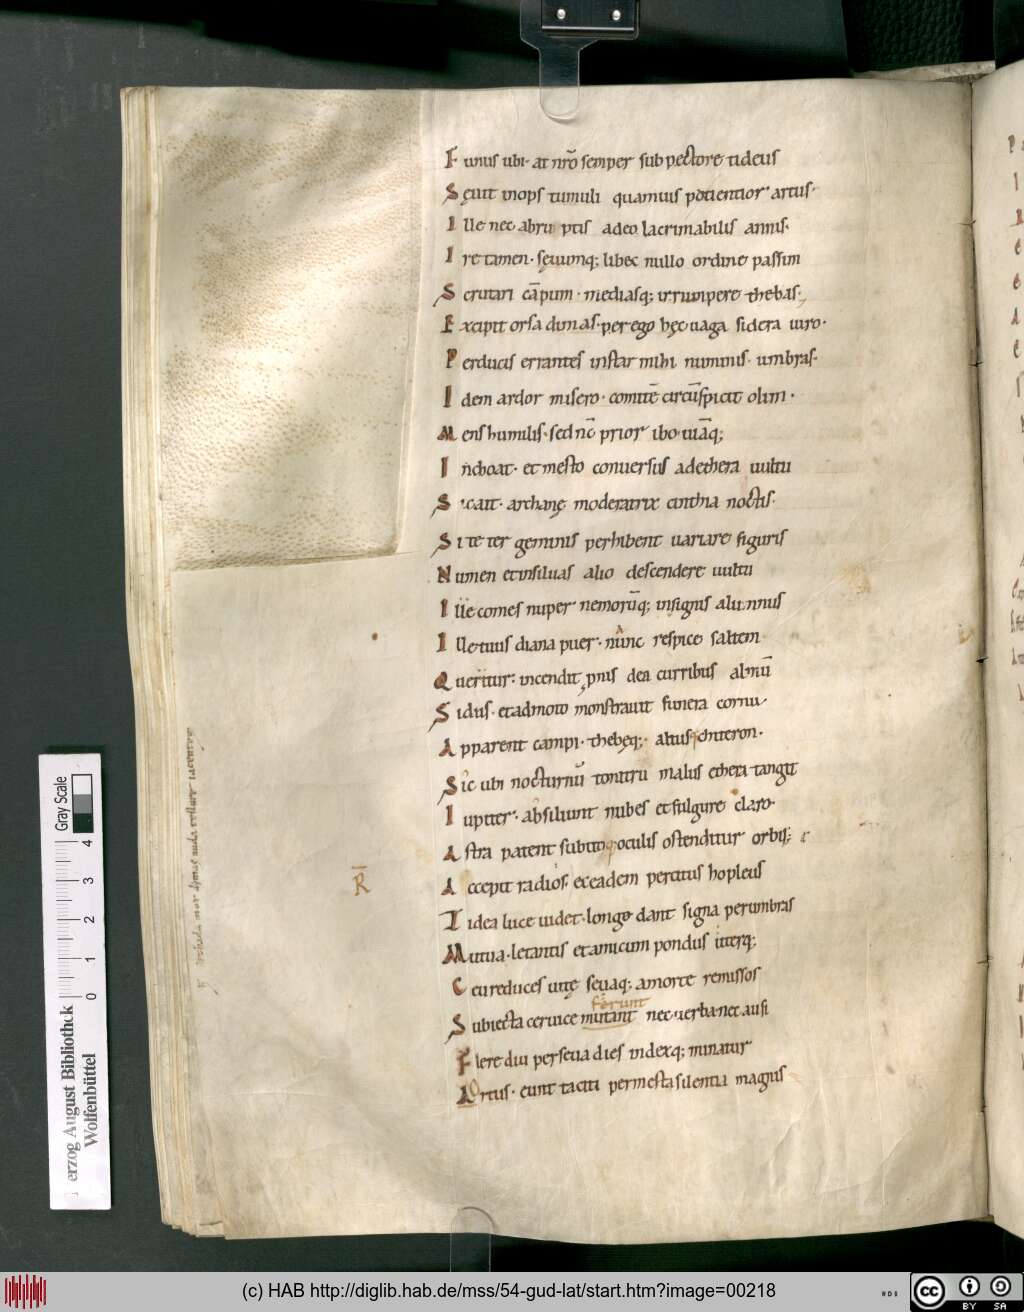 F unus ubi· at nr̄o semper sub pectore tideus
S ęuit inops tumuli quamuis patientior artus·
I lle nec abru ptis adeo lacrimabilis annis·
I re tamen· sęuumq; libet nullo ordine passim
S crutari cāpum· mediasq; irrumpere thebas·
E xcipit orsa dimas· per ego hęc uaga sidera iuro·
P erducis errantes instar mihi numinis umbras·
I dem ardor misero· comitē circūspicit olim·
M ens humilis· sed nc̄ prior ibo· uiāq;
I nchoat· et mesto conuersus ad ethera uultu
S ic ait· archanę moderatrix cinthia noctis·
S i te ter geminis perhibent uariare figuris
N umen et in siluas alio descendere uultu
I lle comes nuper nemorūq; insignis alumnus
I lle tuus diana puer· nunc respice saltem
Q ueritur: incendit pnis dea curribus almū
S idus· et admoto monstrauit funera cornu·
A pparent campi· thebęq; altus citheron·
S ic ubi nocturnū tonitru malus ethera tangit
I upiter· absiliunt nubes et fulgure claro·
A stra patent subitoq oculis ostenditur orbis;
A ccepit radios· et eadem percitus hopleus
T idea luce uidet· longe dant signa per umbras
M utua· letantis et amicum pondus uterq;
C eu reduces uitę seuaq; a morte remissos
ferunt
S ubiecta ceruice mutant nec uerba· nec ausi
F lere diu perseua dies indexq; minatur
A Ortus· eunt taciti per mesta silentia magnis
R̄
Gray Scale
0 1 2 3 4
erzog August Bibliothek
Wolfenbüttel
(c) HAB http://diglib.hab.de/mss/54-gud-lat/start.htm?image=00218
cc BY SA